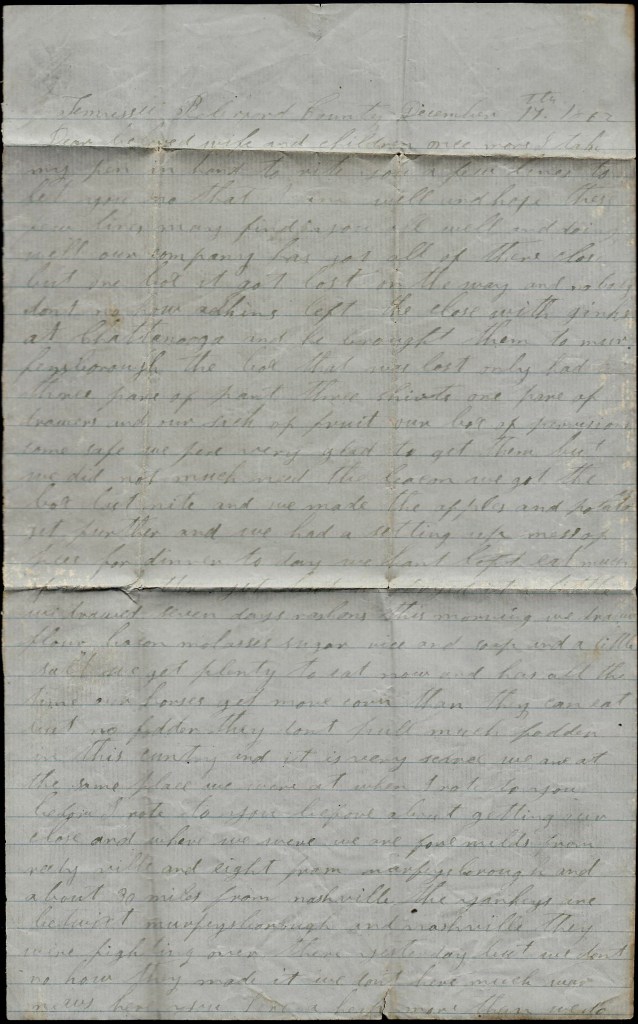 Tennessee County December 17th 1862
Dear beloved wife and children once more I take
my pen in hand to rite you a few lines to
let you no that I am well and hope these
few lines may find you all well and doing
well our company has got all of there clos
but one box it got lost on the way and nobody
dont no how left the close with
at Chattanooga and he brought them to murf
freesborough the box that was lost only had
three pare of pant three shirts one pare of
drawers and our sack of fruit our box of
came safe we fore very glad to get them but
we did not much need the bacon we got the
box last nite and we made the apples and potatoes
get further and we had a setting up mess of
for dinner to day we eat much
we drawed seven days rashons this morning we draw
flour bacon molasses sugar rice and soap and a little
salt we get plenty to eat now and has all the
time our horses get more corn than they can eat
but no fodder they dont pull much fodder
in this cuntry and it is very scarce we are at
the same place we were at when I rote to you
before I rote to you before about getting our
close and where we were we are fore milds from
redy ville and eight from murfeysborough and
about 30 miles from nashville the yankeys are
betwixt murfeysborough and nashville they
were fighting over there yesterday but we dont
no how they made it we dont here much war
news here you more than we do